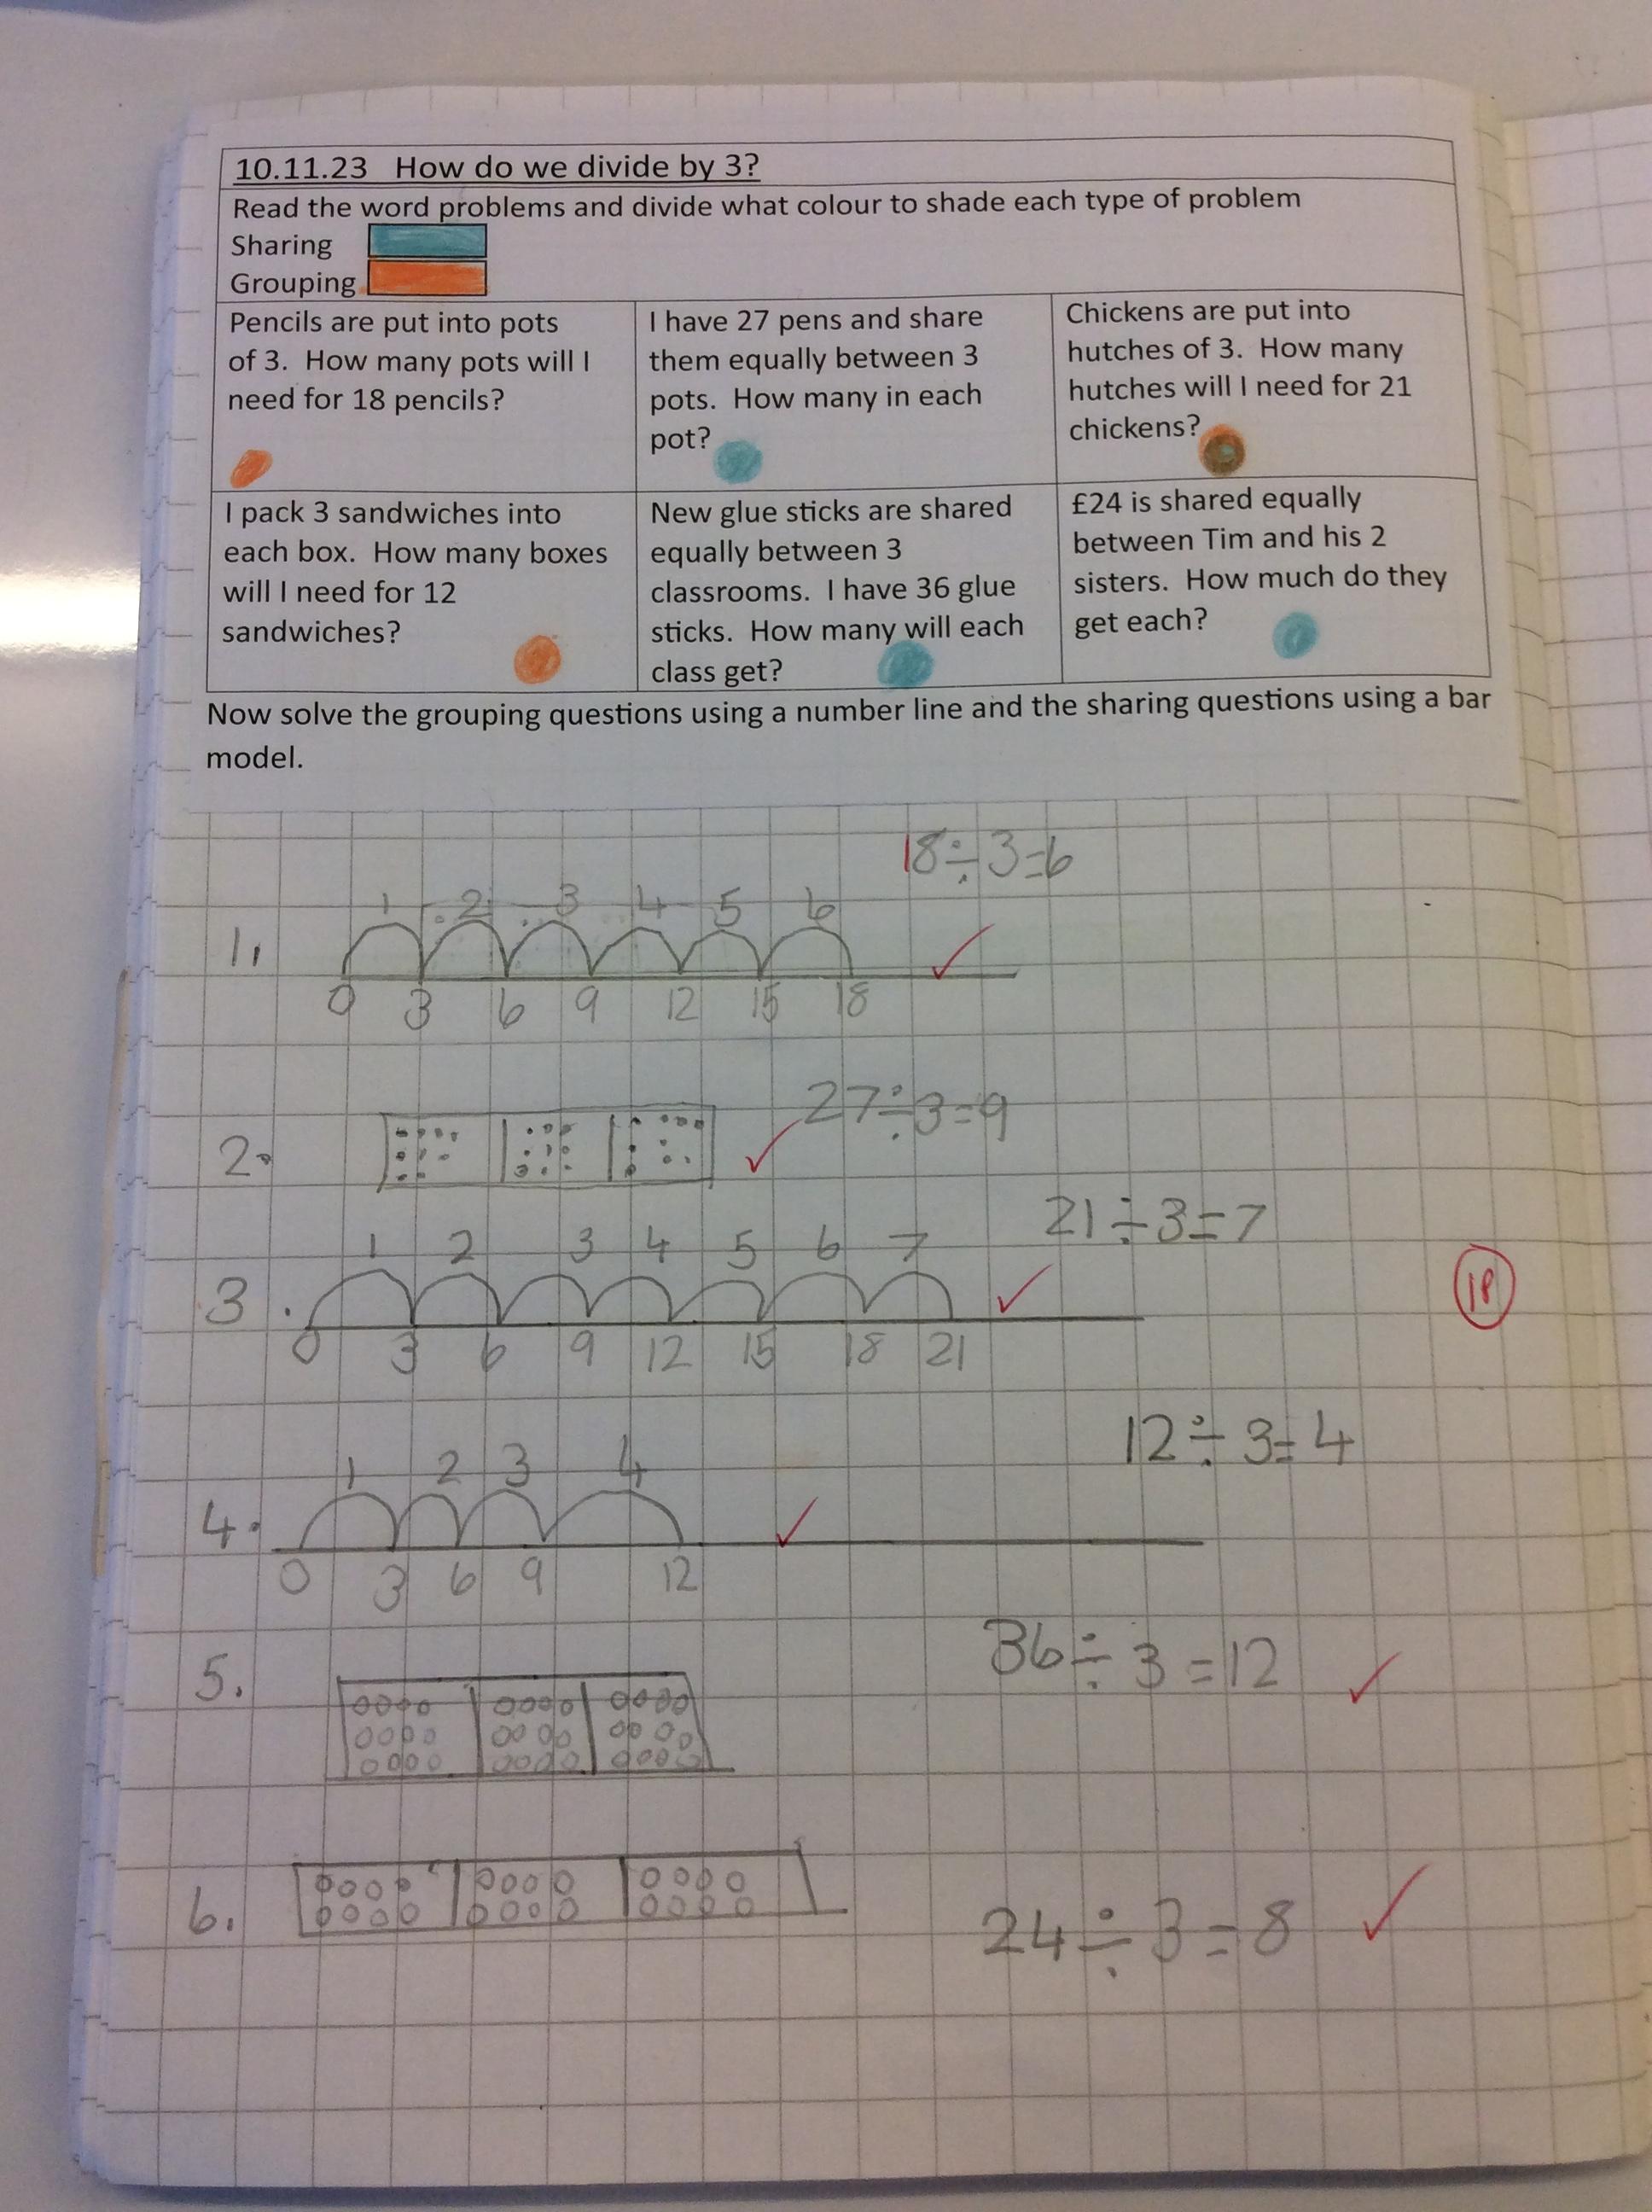 10.11.23 How do we divide by 3?
Read the word problems and divide what colour to shade each type of problem
Sharing
Grouping
Pencils are put into pots
of 3. How many pots will I
need for 18 pencils?
I have 27 pens and share
them equally between 3
pots. How many in each
pot?
Chickens are put into
hutches of 3. How many
hutches will I need for 21
chickens?
I pack 3 sandwiches into
each box. How many boxes
will I need for 12
sandwiches?
New glue sticks are shared
equally between 3
classrooms. I have 36 glue
sticks. How many will each
class get?
£24 is shared equally
between Tim and his 2
sisters. How much do they
get each?
Now solve the grouping questions using a number line and the sharing questions using a bar
model.
18÷3=6
1 2 3 4 5 6
1.
0 3 6 9 12 15 18
27÷3=9
2.
21÷3=7
1 2 3 4 5 6 7
3.
0 3 6 9 12 15 18 21
12÷3=4
1 2 3 4
4.
0 3 6 9 12
36÷3=12
5.
6.
24÷3=8